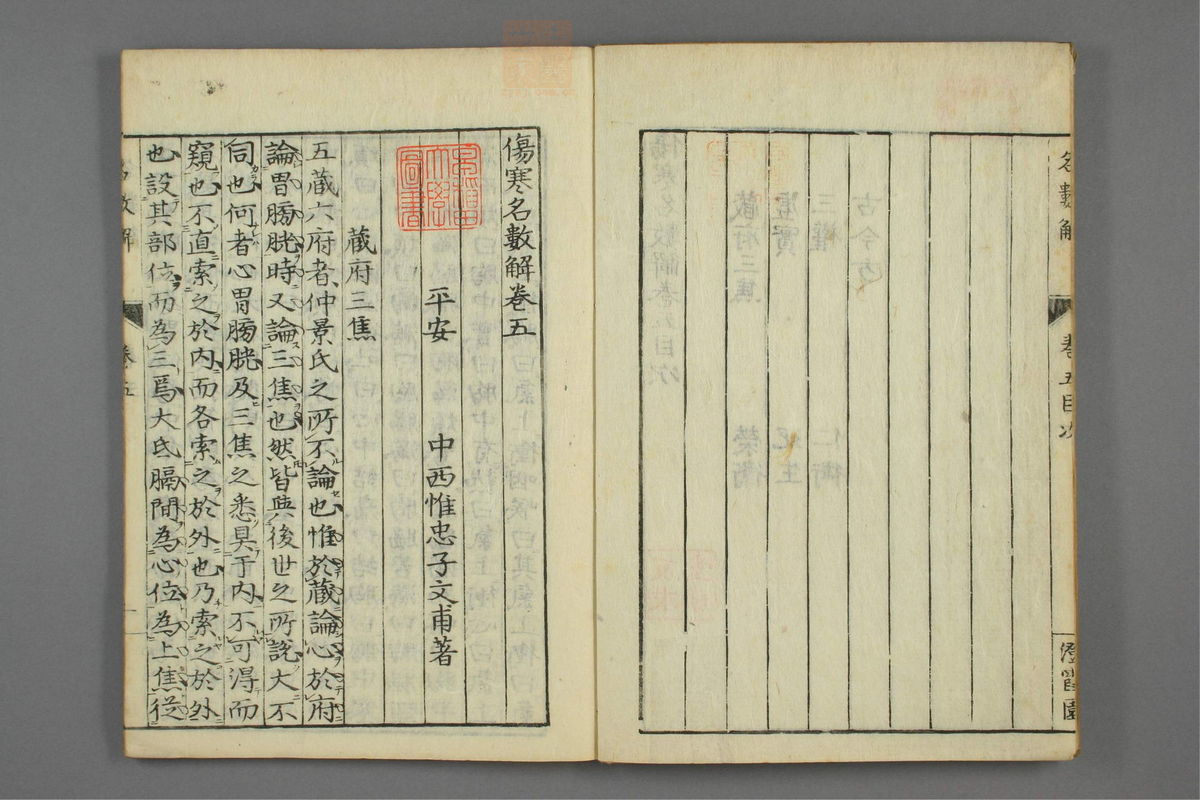 名數解
卷五目次
傷寒名數解卷五
平安 中西惟忠子文甫著
藏府三焦
五藏六府者仲景氏之所不論也惟於藏論心於府
論胃膓胱時又論三焦也然皆與後世之所說大不
同也何者心胃膓胱及三焦之悉具于内不可得而
窺也不直索之於内而各索之於外也乃索之於外
也設其部位而為三焉大氐膈間為心位為上焦從
名數解
卷五